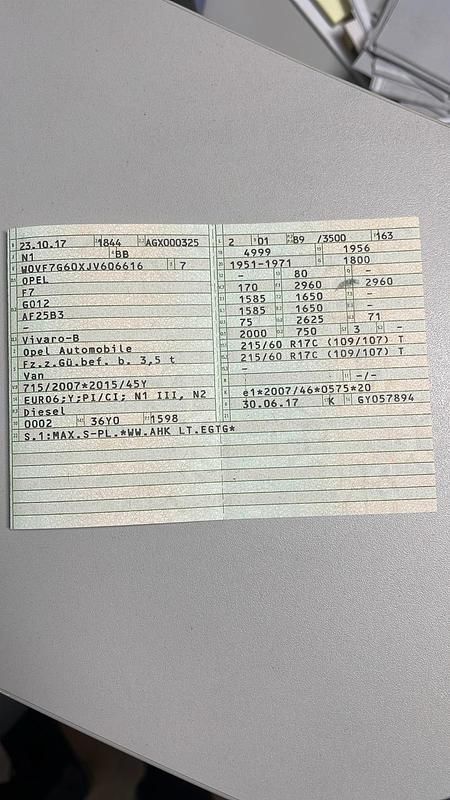 23.10.17 1844 AGX000325
N1 BB
WOVF7G60XJV606616 7
OPEL
F7
G012
AF25B3
–
Vivaro-B
Opel Automobile
Fz.z.Gü.bef. b. 3,5 t
Van
715/2007*2015/45Y
EURO6;Y;PI/CI; N1 III, N2
Diesel
0002 36Y0 1598
S.1:MAX.S-PL.*WW.AHK LT.EGTG*
2 01 89 /3500 163
4999 1956
1951-1971 1800
– 80 –
170 2960 2960
1585 1650 –
1585 1650 –
75 2625 71
2000 750 3 –
215/60 R17C (109/107) T
215/60 R17C (109/107) T
–
–/–
e1*2007/46*0575*20
30.06.17 K GY057894